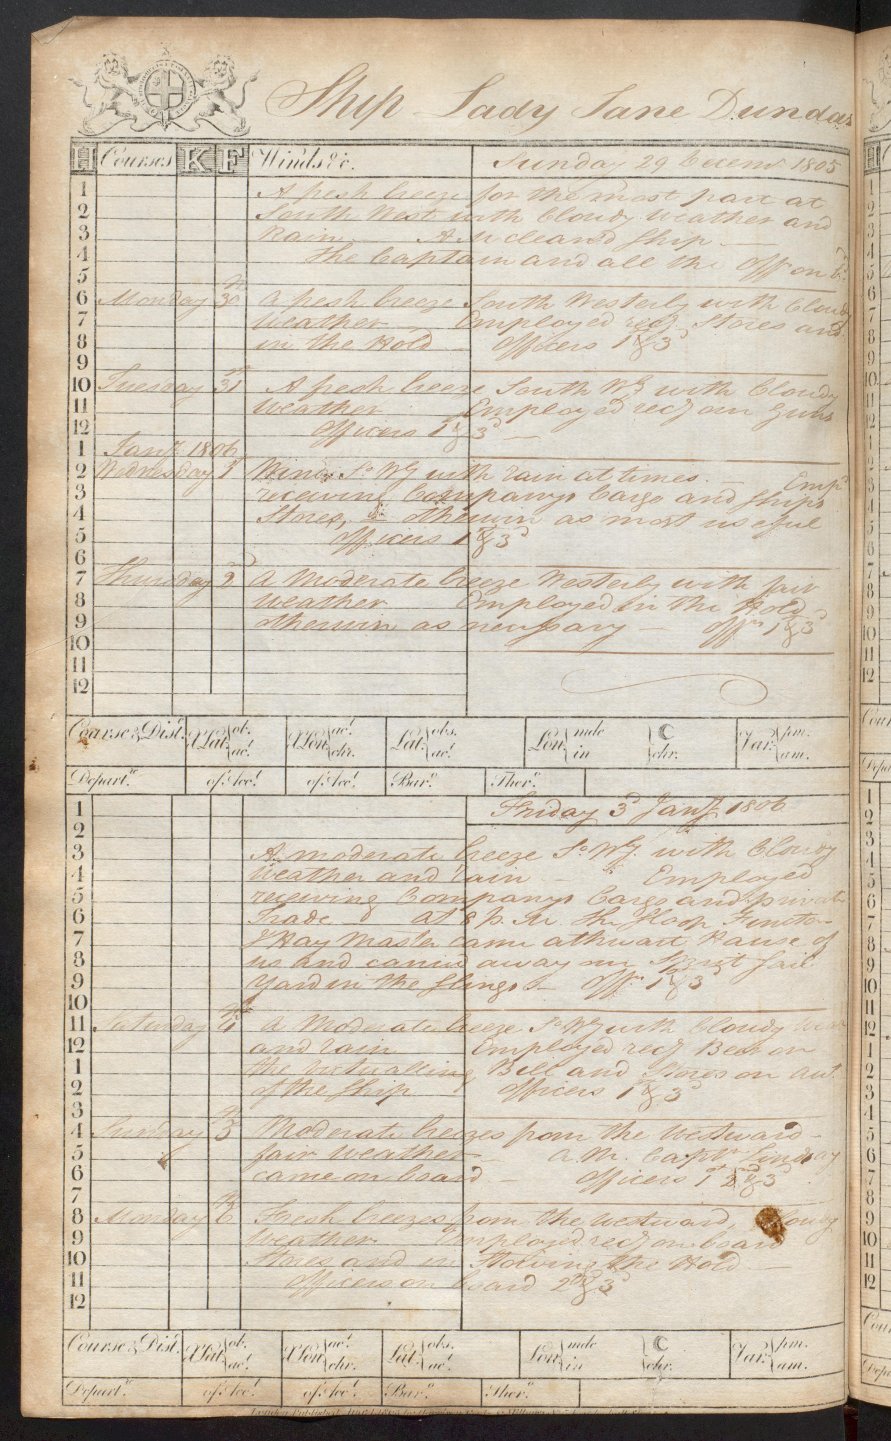 Ship Lady Jane Dundas
H Courses K F Winds &c. Sunday 29 Decemr 1805
1 A fresh breeze for the most part at
2 South West with Cloudy Weather and
3 Rain A M cleaned Ship
4 The Captain and all the Offrs on bd
5
6 Monday 30th A fresh breeze South Westerly with Cloudy
7 Weather Employed recg Stores and
8 in the Hold Officers 1st & 3d
9
10 Tuesday 31st A fresh breeze South Wy with Cloudy
11 Weather Employed recg our Guns
12 Officers 1st & 3d
1 Jany 1806
2 Wednesday 1st Winds So Wy with rain at times. Empd
3 receiving Companys Cargo and Ships
4 Stores, & otherwise as most useful
5 Officers 1st & 3d
6
7 Thursday 2d A Moderate breeze Westerly with fair
8 Weather Employed in the Hold
9 otherwise as necessary Offrs 1st & 3d
10
11
12
Course & Dist. XLat. ob. ac. XLon. ac. chr. Lat. obs. ac. Lon. mde in C chr. Var. pm. am.
Depart.re of Acc.t of Acc.t Bar.r Ther.r
1 Friday 3d Jany 1806
2
3 A moderate breeze So Wy. with Cloudy
4 Weather and rain Employed
5 receiving Companys Cargo and private
6 Trade & At 8 P. M the Sloop
7 J Hay Master came athwart Hawse of
8 us and carried away our Spritsail
9 Yard in the Slings Offrs 1st & 3d
10
11 Saturday 4th A Moderate breeze So Wy with Cloudy
12 and rain Employed recg Beer on
1 the Victualling Bill and Stores on Acct
2 of the Ship Officers 1st & 3d
3
4 Sunday 5th Moderate breezes from the Westward
5 fair weather A. M. Captn Lindsay
6 came on board Officers 1st 2nd & 3d
7
8 Monday 6th Fresh breezes from the Westward, Cloudy
9 Weather Employed recg on board
10 Stores and in Stowing the Hold
11 Officers on board 2nd & 3d
12
Course & Dist. XLat. ob. ac. XLon. ac. chr. Lat. obs. ac. Lon. mde in C chr. Var. pm. am.
Depart.re of Acc.t of Acc.t Bar.r Ther.r